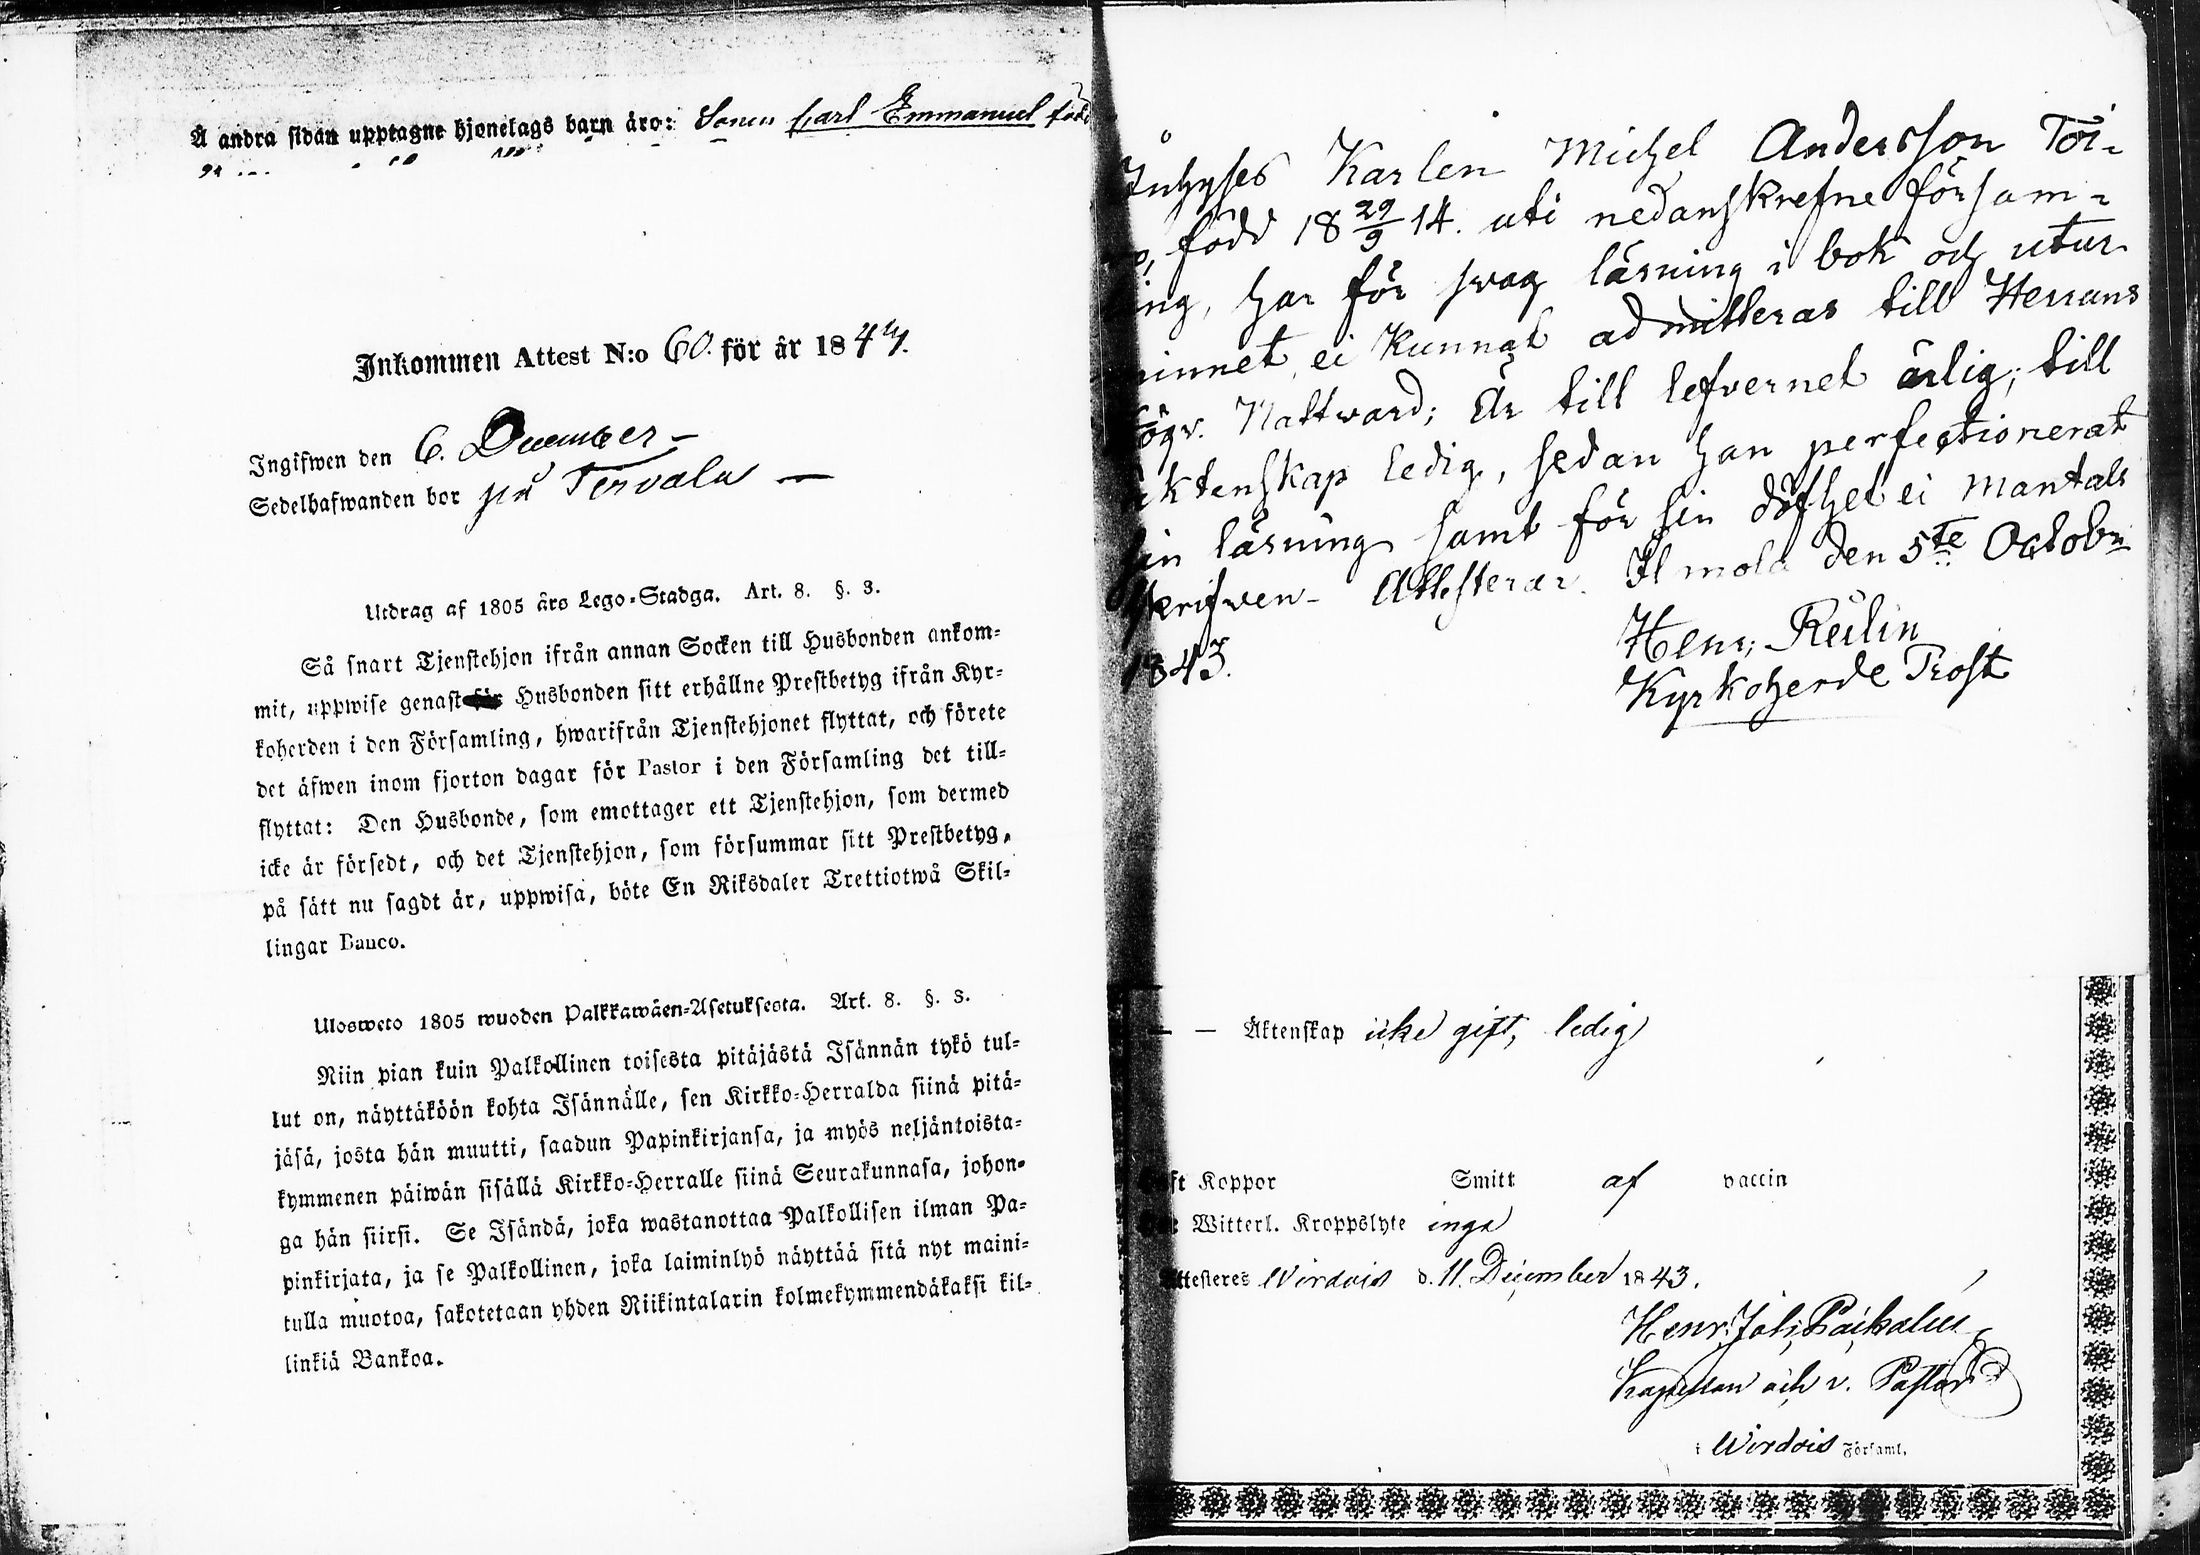 Å andra sidan upptagne hjonelags barn äro: Sonen Carl Emmanuel född
Inkommen Attest N:o 60. för år 1844.
Ingifwen den 6. December –
Sedelhafwanden bor på Tervala –
Utdrag af 1805 års Lego-Stadga. Art. 8. §. 3.
Så snart Tjenstehjon ifrån annan Socken till Husbonden ankom-
mit, uppwise genast för Husbonden sitt erhållne Prestbetyg ifrån Kyr-
koherden i den Församling, hwarifrån Tjenstehjonet flyttat, och förete
det äfwen inom fjorton dagar för Pastor i den Församling det till-
flyttat: Den Husbonde, som emottager ett Tjenstehjon, som dermed
icke är försedt, och det Tjenstehjon, som försummar sitt Prestbetyg,
på sätt nu sagdt är, uppwisa, böte En Riksdaler Trettiotwå Skil-
lingar Banco.
Ulosweto 1805 wuoden Palkkawäen-Asetuksesta. Art. 8. §. 3.
Niin pian kuin Palkollinen toisesta pitäjästä Isännän tykö tul-
lut on, näyttäköön kohta Isännälle, sen Kirkko-Herralda siinä pitä-
jäsä, josta hän muutti, saadun Papinkirjansa, ja myös neljäntoista-
kymmenen päiwän sisällä Kirkko-Herralle siinä Seurakunnasa, johon-
ga hän siirsi. Se Isändä, joka wastanottaa Palkollisen ilman Pa-
pinkirjata, ja se Palkollinen, joka laiminlyö näyttää sitä nyt maini-
tulla muotoa, sakotetaan yhden Riikintalarin kolmekymmendäkaksi kil-
linkiä Bankoa.
Inhyses Karlen Michel Andersson Toi-
född 18 29/9 14. uti nedanskrefne försam-
ing, har för swag läsning i bok och utur
minnet, ei kunnat admitteras till Herrans
Högv. Nattward; Är till lefvernet ärlig; till
äktenskap ledig, sedan han perfectionerat
sin läsning samt för sin döfhet ei mantals
skrifven – Attesterar. Ilmola den 5te Octobr
1843.
Henr; Reilin
Kyrkoherde Prost
– – Äktenskap icke gift, ledig
haft Koppor Smitt af vaccin
Witterl. Kroppslyte inga
Attesteres Wirdois d. 11. December 1843.
Henr. Joh; Päikalin
Kapellan och v. Pastor
i Wirdois Församl.